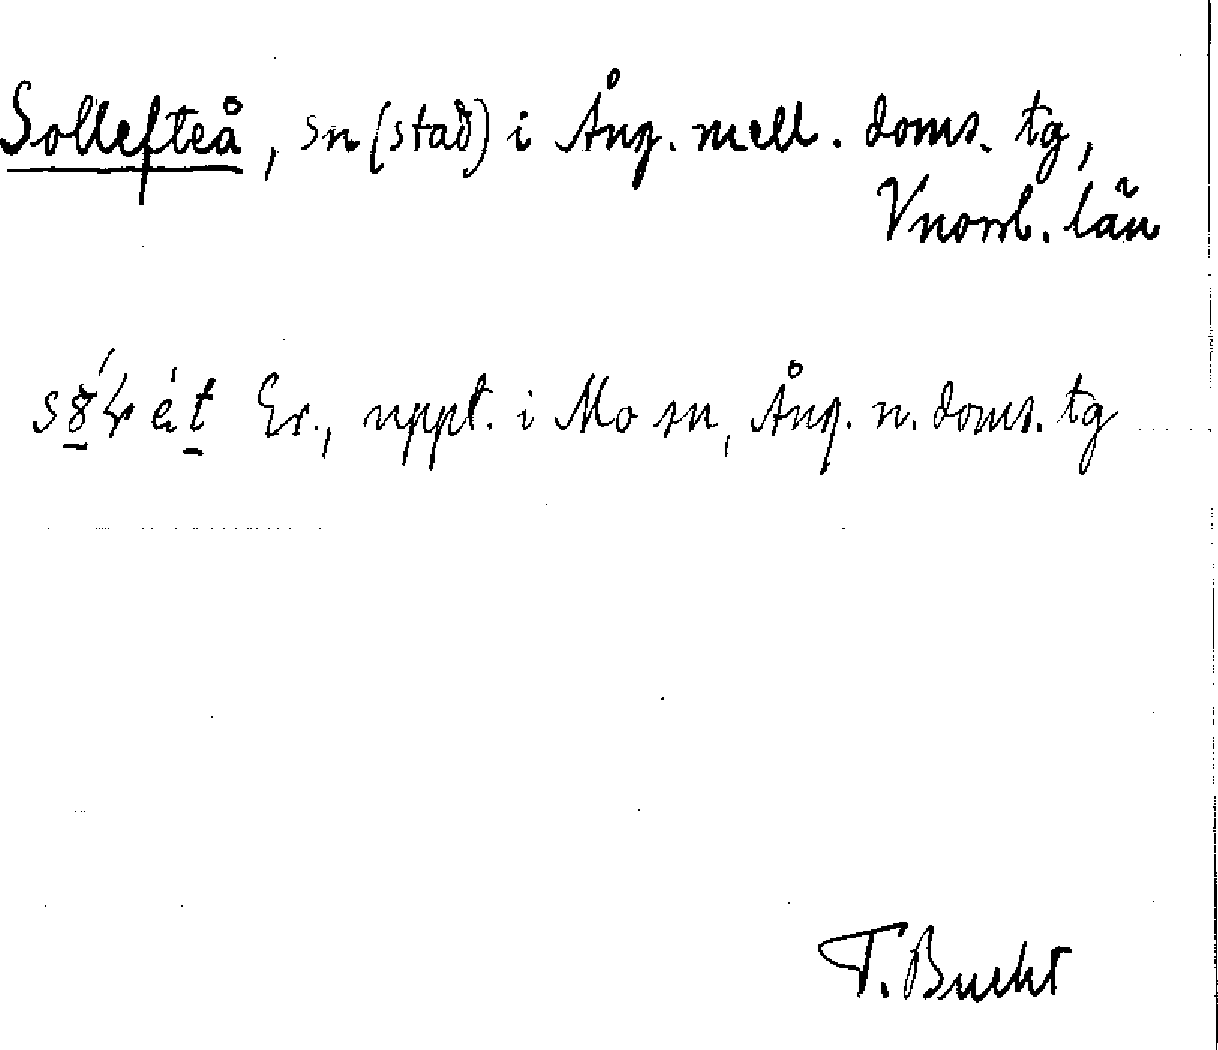 Sollefteå, sn (stad) i Ång. mell. doms. tg,
Vnorrl. län
Er., uppt. i Mo sn, Ång. n. doms. tg
T. Bucht